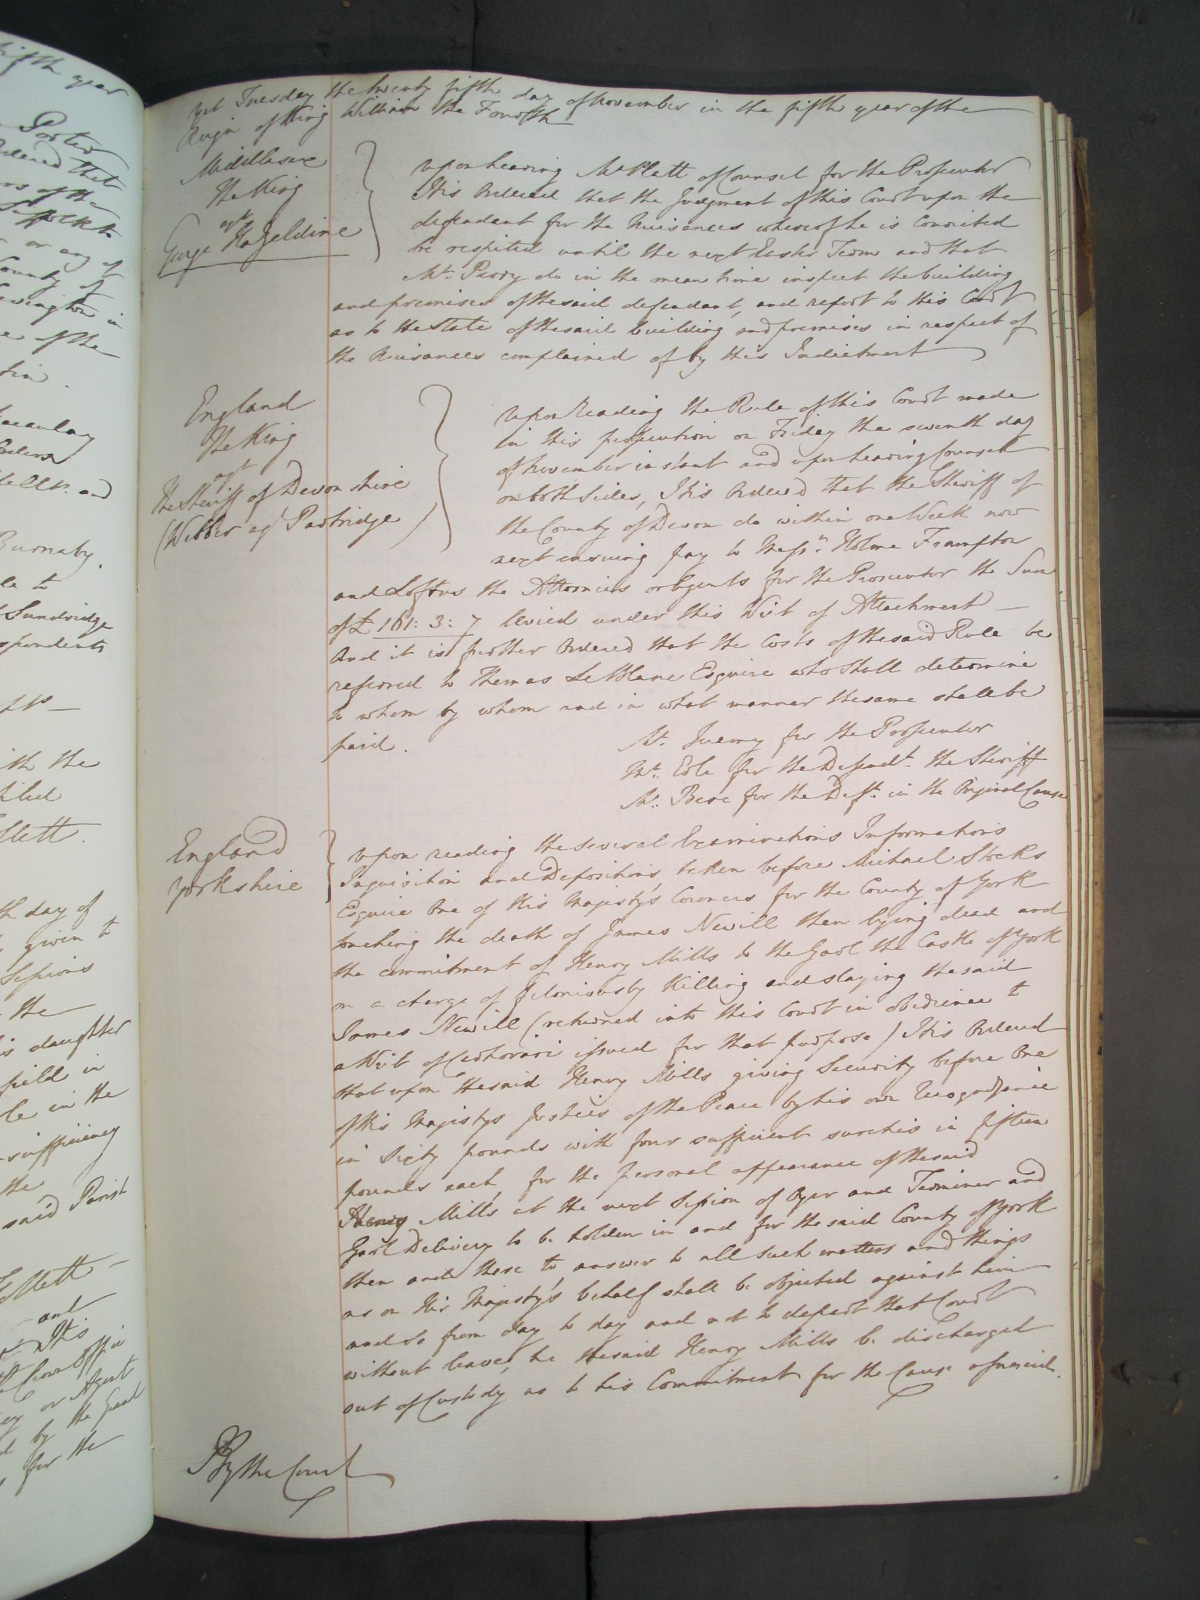 yet Tuesday the twenty fifth day of November in the fifth year of the
Reign of King William the Fourth
Middlesex
The King
agt
George Hazeldine
Upon hearing Mr. Platt of Counsel for the Prosecutor
It is Ordered that the Judgment of this Court upon the
defendant for the Nuisances whereof he is convicted
be respited until the next Easter Term and that
Mr. Perry do in the mean time inspect the building
and premises of the said defendant, and report to this Court
as to the state of the said building and premises in respect of
the Nuisances complained of by this Indictment
England
The King
agt
The Sheriff of Devonshire
(Webber agt Partridge)
Upon Reading the Rule of this Court made
in this prosecution on Friday the seventh day
of November instant and upon hearing Counsel
on both sides, It is Ordered that the Sheriff of
the County of Devon do within one Week now
next ensuing pay to Messrs. Holme Frampton
and Loftus the Attornies or Agents for the Prosecutor the Sum
of £161: 3: 7 levied under this Writ of Attachment
And it is further Ordered that the Costs of the said Rule be
referred to Thomas Le Blanc Esquire who shall determine
to whom by whom and in what manner the same shall be
paid.
Mr. for the Prosecutor
Mr. Erle for the Defendt. the Sheriff
Mr. Bere for the Deft. in the Original Cause
England
Yorkshire
Upon reading the several Examinations Informations
Inquisition and Depositions, taken before Michael Stocks
Esquire One of His Majesty's Coroners for the County of York
touching the death of James Newill then lying dead and
the commitment of Henry Mills to the Gaol the Castle of York
on a charge of feloniously Killing and slaying the said
James Newill (returned into this Court in obedience to
a Writ of Certiorari issued for that purpose) It is Ordered
that upon the said Henry Mills giving Security before One
of His Majestys Justices of the Peace by his own Recognizance
in Sixty pounds with four sufficient sureties in fifteen
pounds each, for the personal appearance of the said
Henry Mills at the next Session of Oyer and Terminer and
Gaol Delivery to be holden in and for the said County of York
then and there to answer to all such matters and things
as on His Majesty's behalf shall be objected against him
and so from day to day and not to depart that Court
without leave, he the said Henry Mills be discharged
out of Custody as to his Commitment for the Cause aforesaid.
By the Court